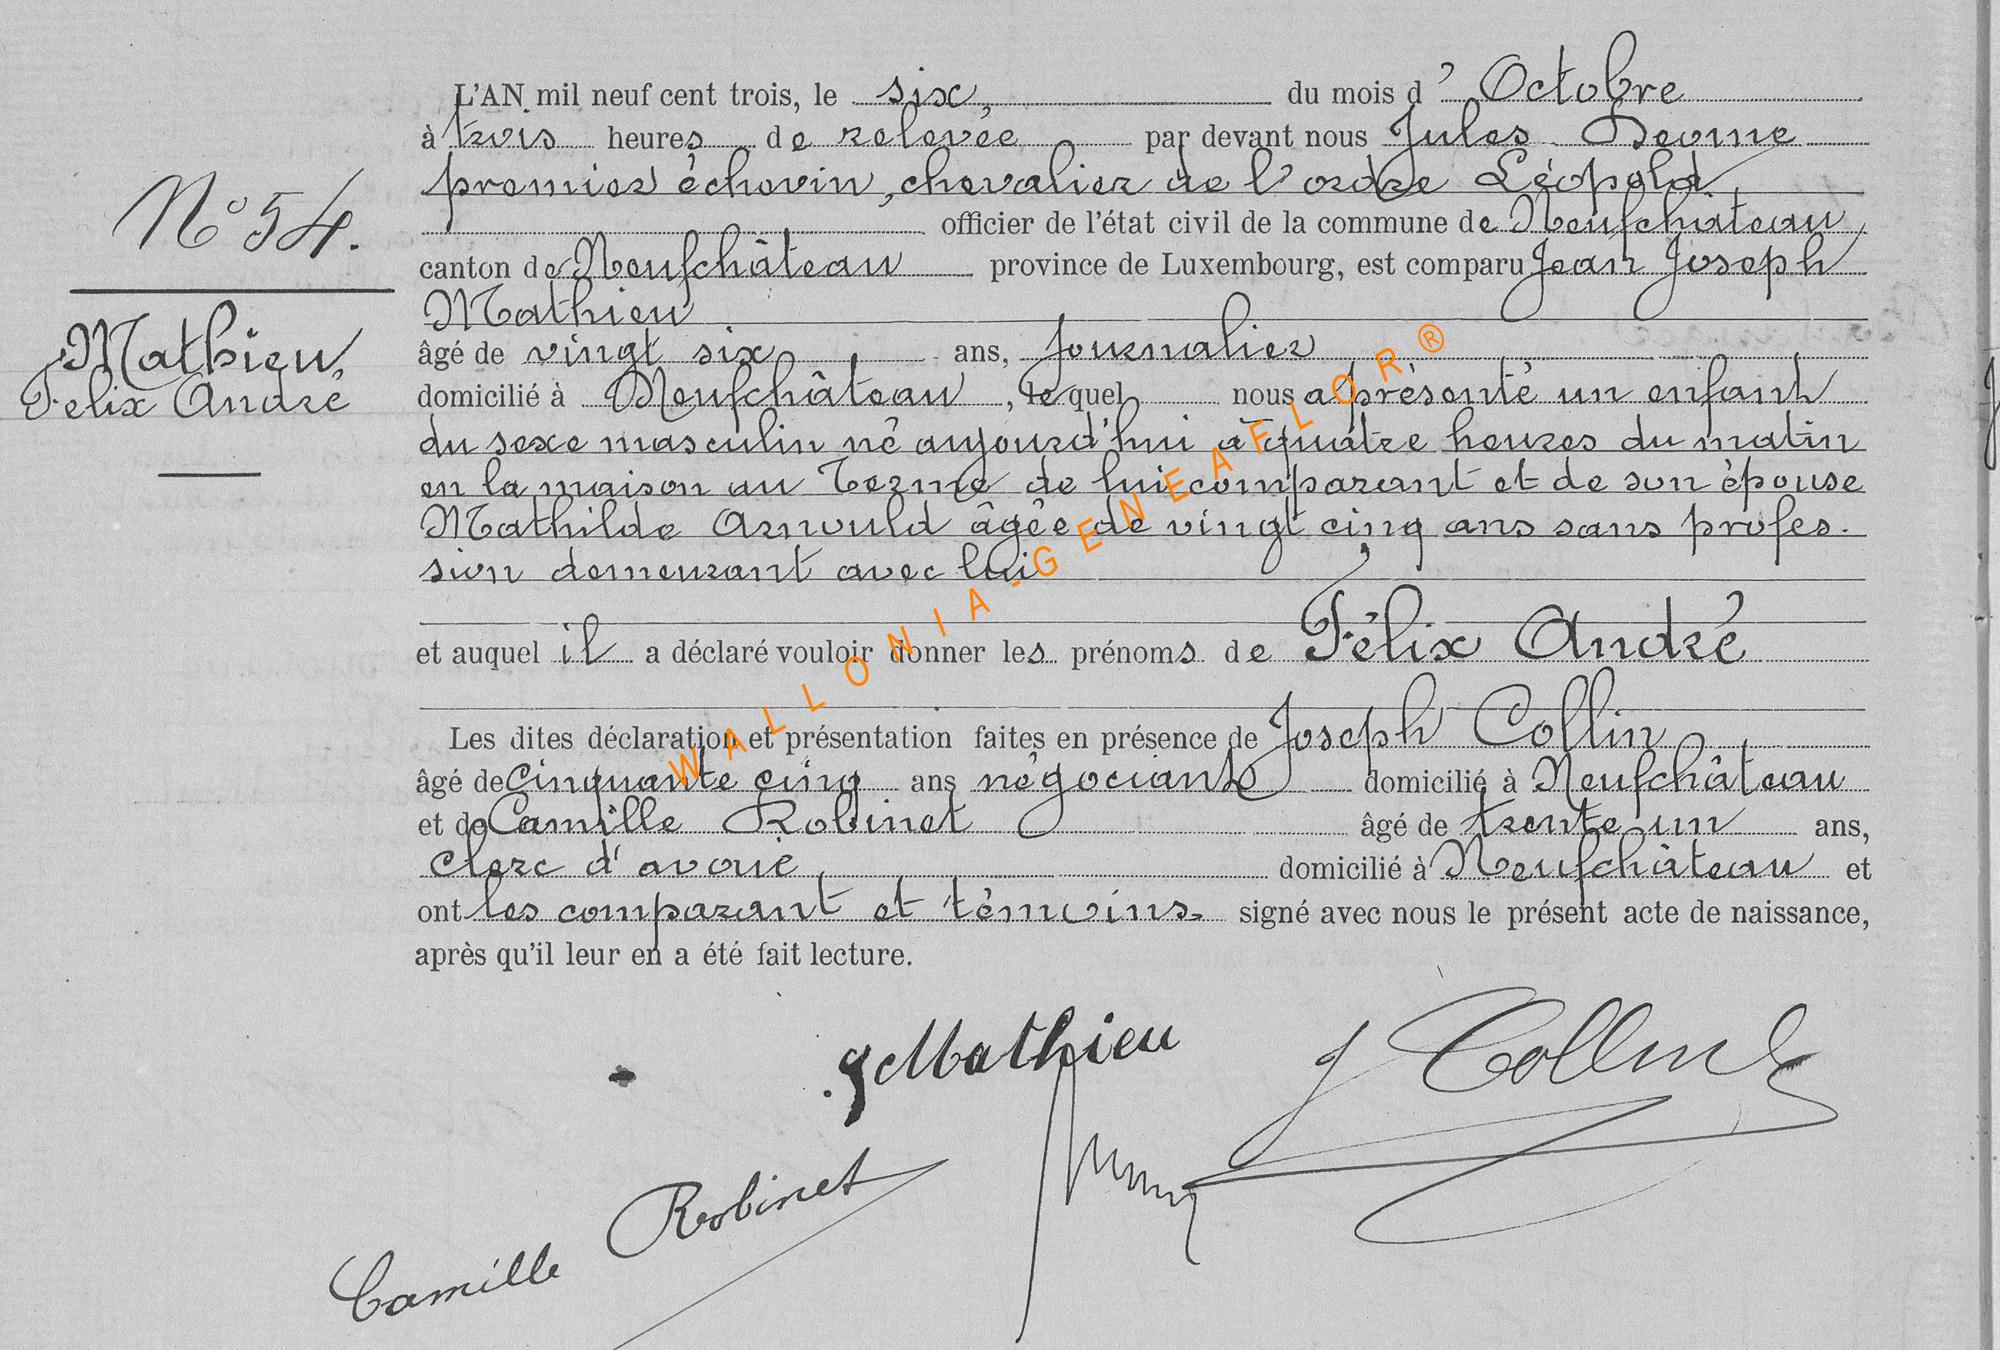 L'AN mil neuf cent trois, le six, du mois d'Octobre
à trois heures de relevée par devant nous Jules
premier échevin, chevalier de l'ordre Léopold,
N° 54.
officier de l'état civil de la commune de Neufchâteau
canton de Neufchâteau province de Luxembourg, est comparu Jean Joseph
Mathieu
Mathieu,
Félix André
âgé de vingt six ans, journalier
domicilié à Neufchâteau, lequel nous a présenté un enfant
du sexe masculin né aujourd'hui à quatre heures du matin
en la maison au Terme de lui comparant et de son épouse
Mathilde Arnould âgée de vingt cinq ans sans profes-
sion demeurant avec lui
et auquel il a déclaré vouloir donner les prénoms de Félix André
Les dites déclaration et présentation faites en présence de Joseph Collin
âgé de cinquante cinq ans négociant domicilié à Neufchâteau
et de Camille Robinet âgé de trente un ans,
clerc d'avoué domicilié à Neufchâteau et
ont les comparant et témoins signé avec nous le présent acte de naissance,
après qu'il leur en a été fait lecture.
WALLONIA-GENEAFLOR®
J Mathieu
J Collin
Camille Robinet